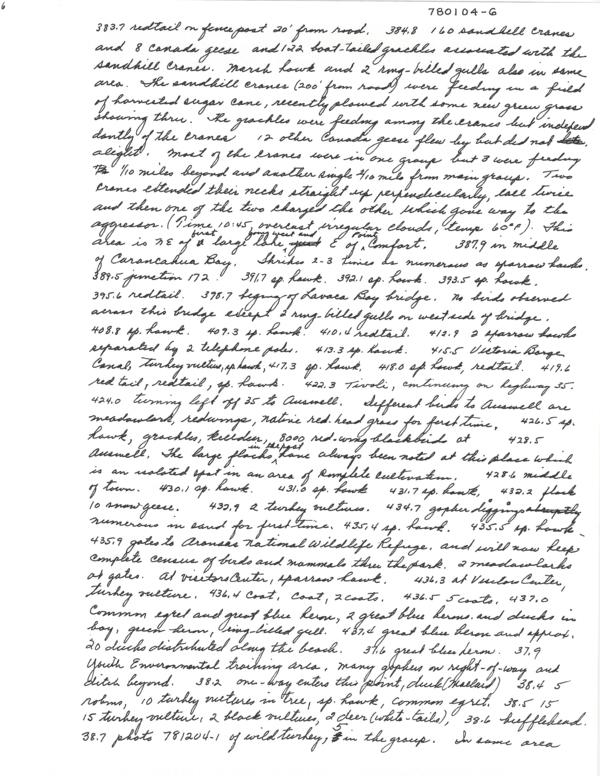 6
780104-6
383.7 redtail on fencepost 20' from road. 384.8 160 sandhill cranes
and 8 Canada geese and 122 boat-tailed grackles associated with the
sandhill cranes. Marsh hawk and 2 ring-billed gulls also in same
area. The sandhill cranes (200' from road) were feeding in a field
of harvested sugar cane, recently plowed with some new green grass
showing thru. The grackles were feeding among the cranes but indepen
dantly of the cranes 12 other Canada geese flew by but did not
alight. Most of the cranes were in one group but 3 were feeding
1/10 miles beyond and another single 2/10 mile from main group. Two
cranes extended their necks straight up perpendicularly, call twice
and then one of the two charged the other which gave way to the
aggressor. (Time 10:45, overcast irregular clouds, temp 60°F). This
area is NE of a large lake E of Point Comfort. 387.9 in middle
of Carancahua Bay. Shrikes 2-3 times as numerous as sparrow hawks.
389.5 junction 172. 391.7 sp. hawk. 392.1 sp. hawk. 393.5 sp. hawk.
395.6 redtail. 398.7 begng of Lavaca Bay bridge. No birds observed
across this bridge except 2 ring-billed gulls on west side of bridge.
408.8 sp. hawk. 409.3 sp. hawk. 410.4 redtail. 412.9 2 sparrow hawks
separated by 2 telephone poles. 413.3 sp. hawk. 415.5 Victoria Barge
Canal, turkey vulture, sp. hawk, 417.3 sp. hawk. 418.0 sp hawk, redtail. 419.6
red tail, redtail, sp. hawk. 422.3 Tivoli, continuing on highway 35.
424.0 turning left off 35 to Austwell. Different birds to Austwell are
meadowlark, redwings, native red. head grass for first time, 426.5 sp.
hawk, grackles, killdeer, 8000 red-wing blackbirds at 428.5
Austwell. The large flocks have always been noted at this place which
is an isolated spot in an area of complete cultivation. 428.6 middle
of town. 430.1 sp. hawk. 431.0 sp. hawk 431.7 sp. hawk, 432.2 flock
10 snow geese. 432.9 2 turkey vultures. 434.7 gopher diggings
numerous in sand for first time. 435.4 sp. hawk. 435.5 sp. hawk-
435.9 gates to Aransas National Wildlife Refuge, and will now keep
complete census of birds and mammals thru the park. 2 meadowlarks
at gates. At visitors Center, sparrow hawk. 436.3 at Visitors Center,
turkey vulture. 436.4 coot, coot, 2 coots. 436.5 5 coots. 437.0
Common egret and great blue heron, 2 great blue herons and ducks in
bay, green heron, ring-billed gull. 437.4 great blue heron and approx.
20 ducks distributed along the beach. 37.6 great blue heron. 37.9
Youth Environmental training area, many gophers on right-of-way and
ditch beyond. 38.2 one-way enters this point, duck (Mallard) 38.4 5
robins, 10 turkey vultures in tree, sp. hawk, common egret. 38.5 15
15 turkey vulture, 2 black vultures, 2 deer (white-tails), 38.6 bufflehead.
38.7 photo 781204-1 of wild turkey, 5 in the group. In same area